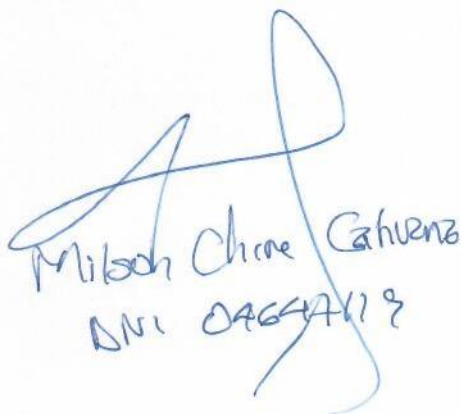 Milson Chire Cahuana
DNI 04647119